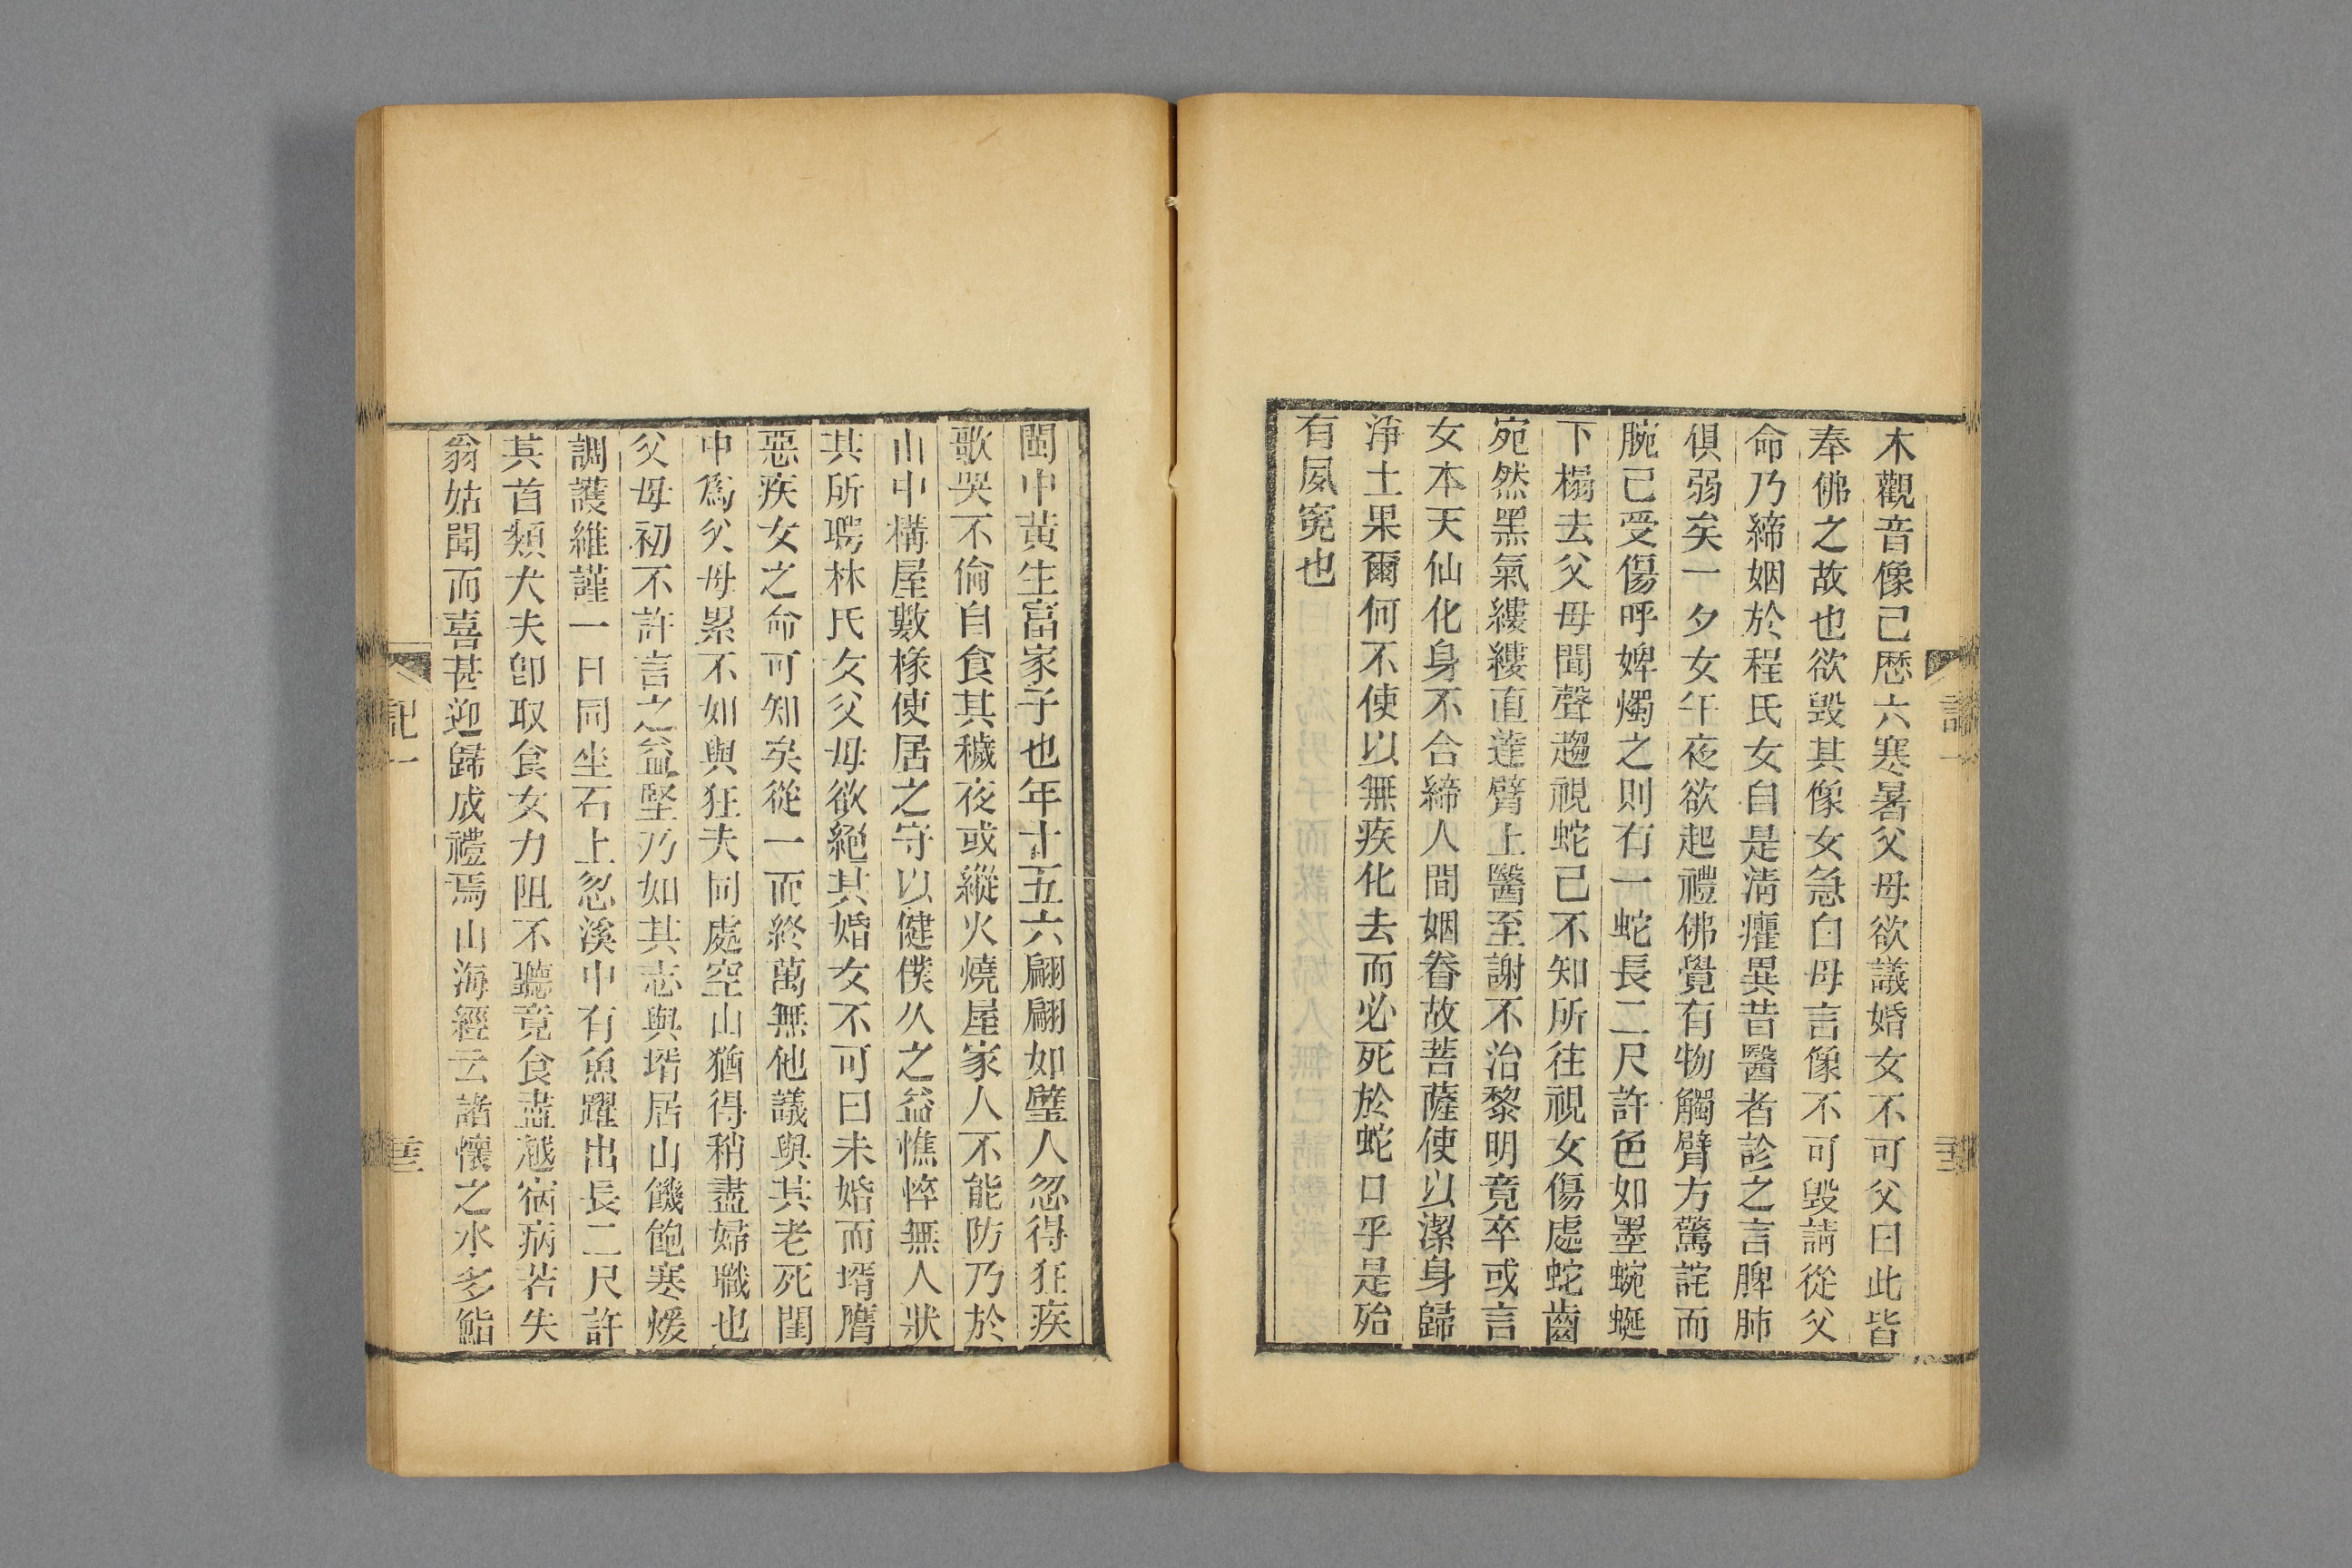 木觀音像已歷六寒暑父母欲議婚女不可父曰此皆
奉佛之故也欲毀其像女急白母言像不可毀請從父
命乃締姻於程氏女自是淸癯異昔醫者診之言脾肺
俱弱矣一夕女午夜欲起禮佛覺有物觸臂方驚詫而
腕已受傷呼婢燭之則有一蛇長二尺許色如墨蜿蜒
下榻去父母聞聲趨視蛇已不知所往視女傷處蛇齒
宛然黑氣縷縷直達臂上醫至謝不治黎明竟卒或言
女本天仙化身不合締人間姻眷故菩薩使以潔身歸
淨土果爾何不使以無疾化去而必死於蛇口乎是殆
有夙冤也
閩中黃生富家子也年十五六翩翩如璧人忽得狂疾
歌哭不倫自食其穢夜或縱火燒屋家人不能防乃於
山中構屋數椽使居之守以健僕久之益憔悴無人狀
其所聘林氏女父母欲絕其婚女不可曰未婚而壻膺
惡疾女之命可知矣從一而終萬無他議與其老死閨
中爲父母累不如與狂夫同處空山猶得稍盡婦職也
父母初不許言之益堅乃如其志與壻居山饑飽寒煖
調護維謹一日同坐石上忽溪中有魚躍出長二尺許
其首類犬夫卽取食女力阻不聽竟食盡越宿病若失
翁姑聞而喜甚迎歸成禮焉山海經云諸懷之水多鮨
記一